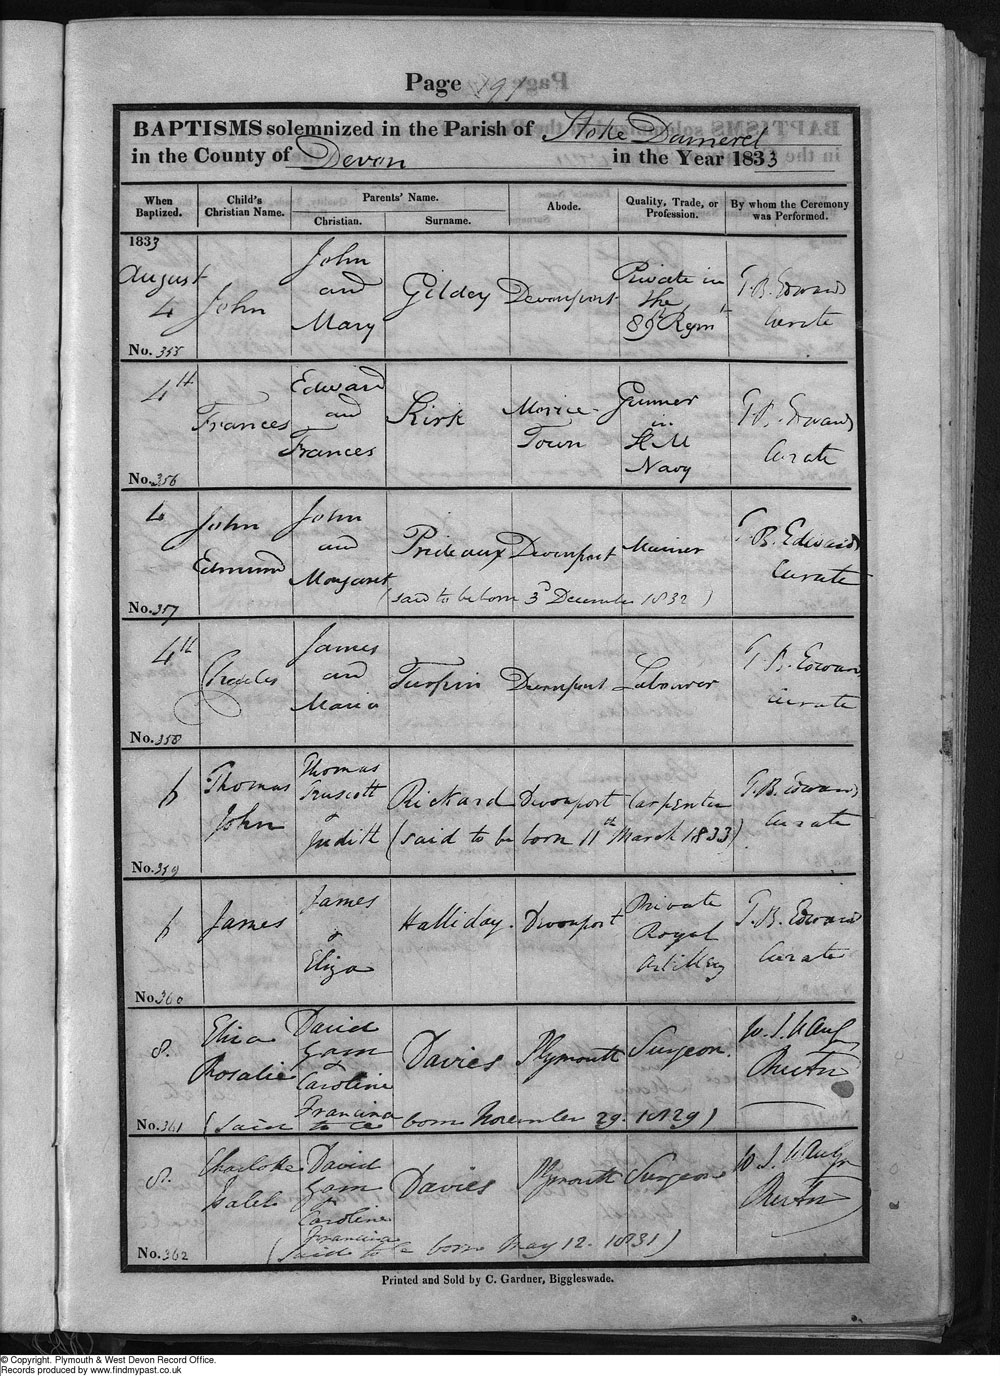 Page 191
BAPTISMS solemnized in the Parish of Stoke Damerel
in the County of Devon in the Year 1833
When Baptized. Child's Christian Name. Parents' Name. Christian. Surname. Abode. Quality, Trade, or Profession. By whom the Ceremony was Performed.
1833
August
4
No. 355
John
John
and
Mary
Gilday
Devonport
Private in
the
89th Regmt
T. B. Edwards
Curate
4th
No. 356
Frances
Edward
and
Frances
Kirk
Morice
Town
Gunner
in
H M
Navy
T. B. Edwards
Curate
4
No. 357
John
Edmund
John
and
Margaret
Prideaux
Devonport
Mariner
(said to be born 3d December 1832)
T. B. Edwards
Curate
4th
No. 358
Charles
James
and
Maria
Turpin
Devonport
Labourer
T. B. Edwards
Curate
6
No. 359
Thomas
John
Thomas
Truscott
&
Judith
Rickard
Devonport
Carpenter
(said to be born 11th March 1833)
T. B. Edwards
Curate
6
No. 360
James
James
&
Eliza
Halliday
Devonport
Private
Royal
Artillery
T. B. Edwards
Curate
8.
No. 361
Eliza
Rosalie
David
Gam
&
Caroline
Francina
Davies
Plymouth
Surgeon.
(said to be born November 29. 1829)
W. S.
8.
No. 362
Charlotte
Isabel
David
Gam
&
Caroline
Francina
Davies
Plymouth
Surgeon
(said to be born May 12. 1831)
W. S.
Printed and Sold by C. Gardner, Biggleswade.
© Copyright. Plymouth & West Devon Record Office.
Records produced by www.findmypast.co.uk